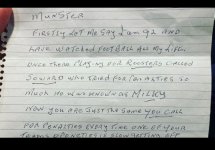 MUNSTER
FIRSTLY LET ME SAY I AM 92 AND
HAVE WATCHED FOOTBALL ALL MY LIFE.
ONCE THERE PLAYING FOR ROOSTERS CALLED
WHO TRIED FOR PENALTIES IS
MUCH HE WAS KNOWN AS MILKY
NOW YOU ARE JUST THE SAME YOU CALL
FOR PENALTIES EVERY TIME ONE OF YOUR
OPPONENTS IS SLOW GETTING OFF